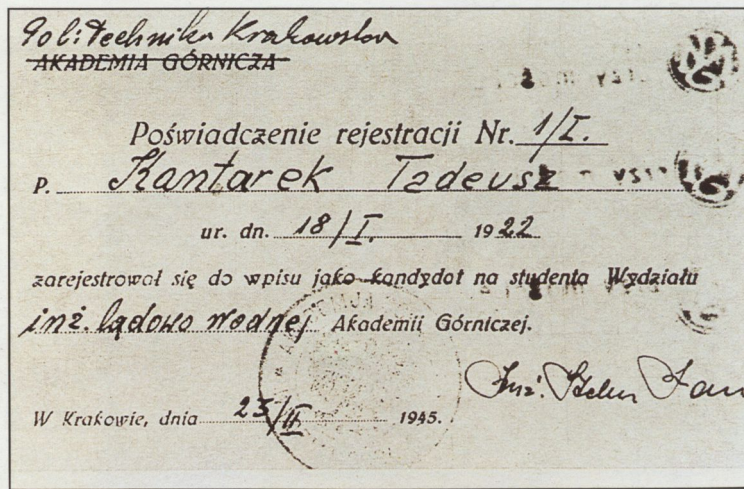 Politechnika Krakowska
AKADEMIA GÓRNICZA
Poświadczenie rejestracji Nr. 1/I.
P. Kantarek Tadeusz
ur. dn. 18/I. 1922
zarejestrował się do wpisu jako kandydat na studenta Wydziału
inż. lądowo wodnej Akademii Górniczej.
Inż. Stefan Jan
W Krakowie, dnia 23/II 1945.